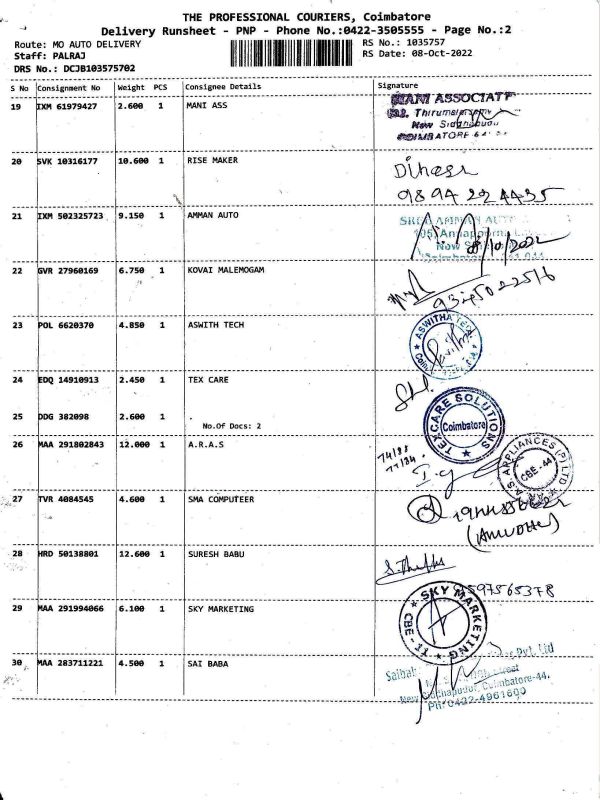 THE PROFESSIONAL COURIERS, Coimbatore
Delivery Runsheet - PNP - Phone No.:0422-3505555 - Page No.:2
Route: MO AUTO DELIVERY RS No.: 1035757
Staff: PALRAJ RS Date: 08-Oct-2022
DRS No.: DCJB103575702
S No Consignment No Weight PCS Consignee Details Signature
19 IXM 61979427 2.600 1 MANI ASS
MANI ASSOCIATE
New
COIMBATORE
20 SVK 10316177 10.600 1 RISE MAKER
Dinesh
9894224435
21 IXM 502325723 9.150 1 AMMAN AUTO
SREE AMMAN AUTO
New
8/10/2022
22 GVR 27960169 6.750 1 KOVAI MALEMOGAM
23 POL 6620370 4.850 1 ASWITH TECH
ASWITHA TECH
24 EDQ 14910913 2.450 1 TEX CARE
TEXCARE SOLUTIONS
Coimbatore
25 DDG 382098 2.600 1
No.Of Docs: 2
26 MAA 291802843 12.000 1 A.R.A.S
APPLIANCES (P) LTD
CBE-44
27 TVR 4084545 4.600 1 SMA COMPUTEER
28 HRD 50138801 12.600 1 SURESH BABU
597565378
29 MAA 291994066 6.100 1 SKY MARKETING
SKY MARKETING
CBE-11
30 MAA 283711221 4.500 1 SAI BABA
Pvt. Ltd
Street
New Siddhapudur, Coimbatore-44.
Ph: 0422-4961600